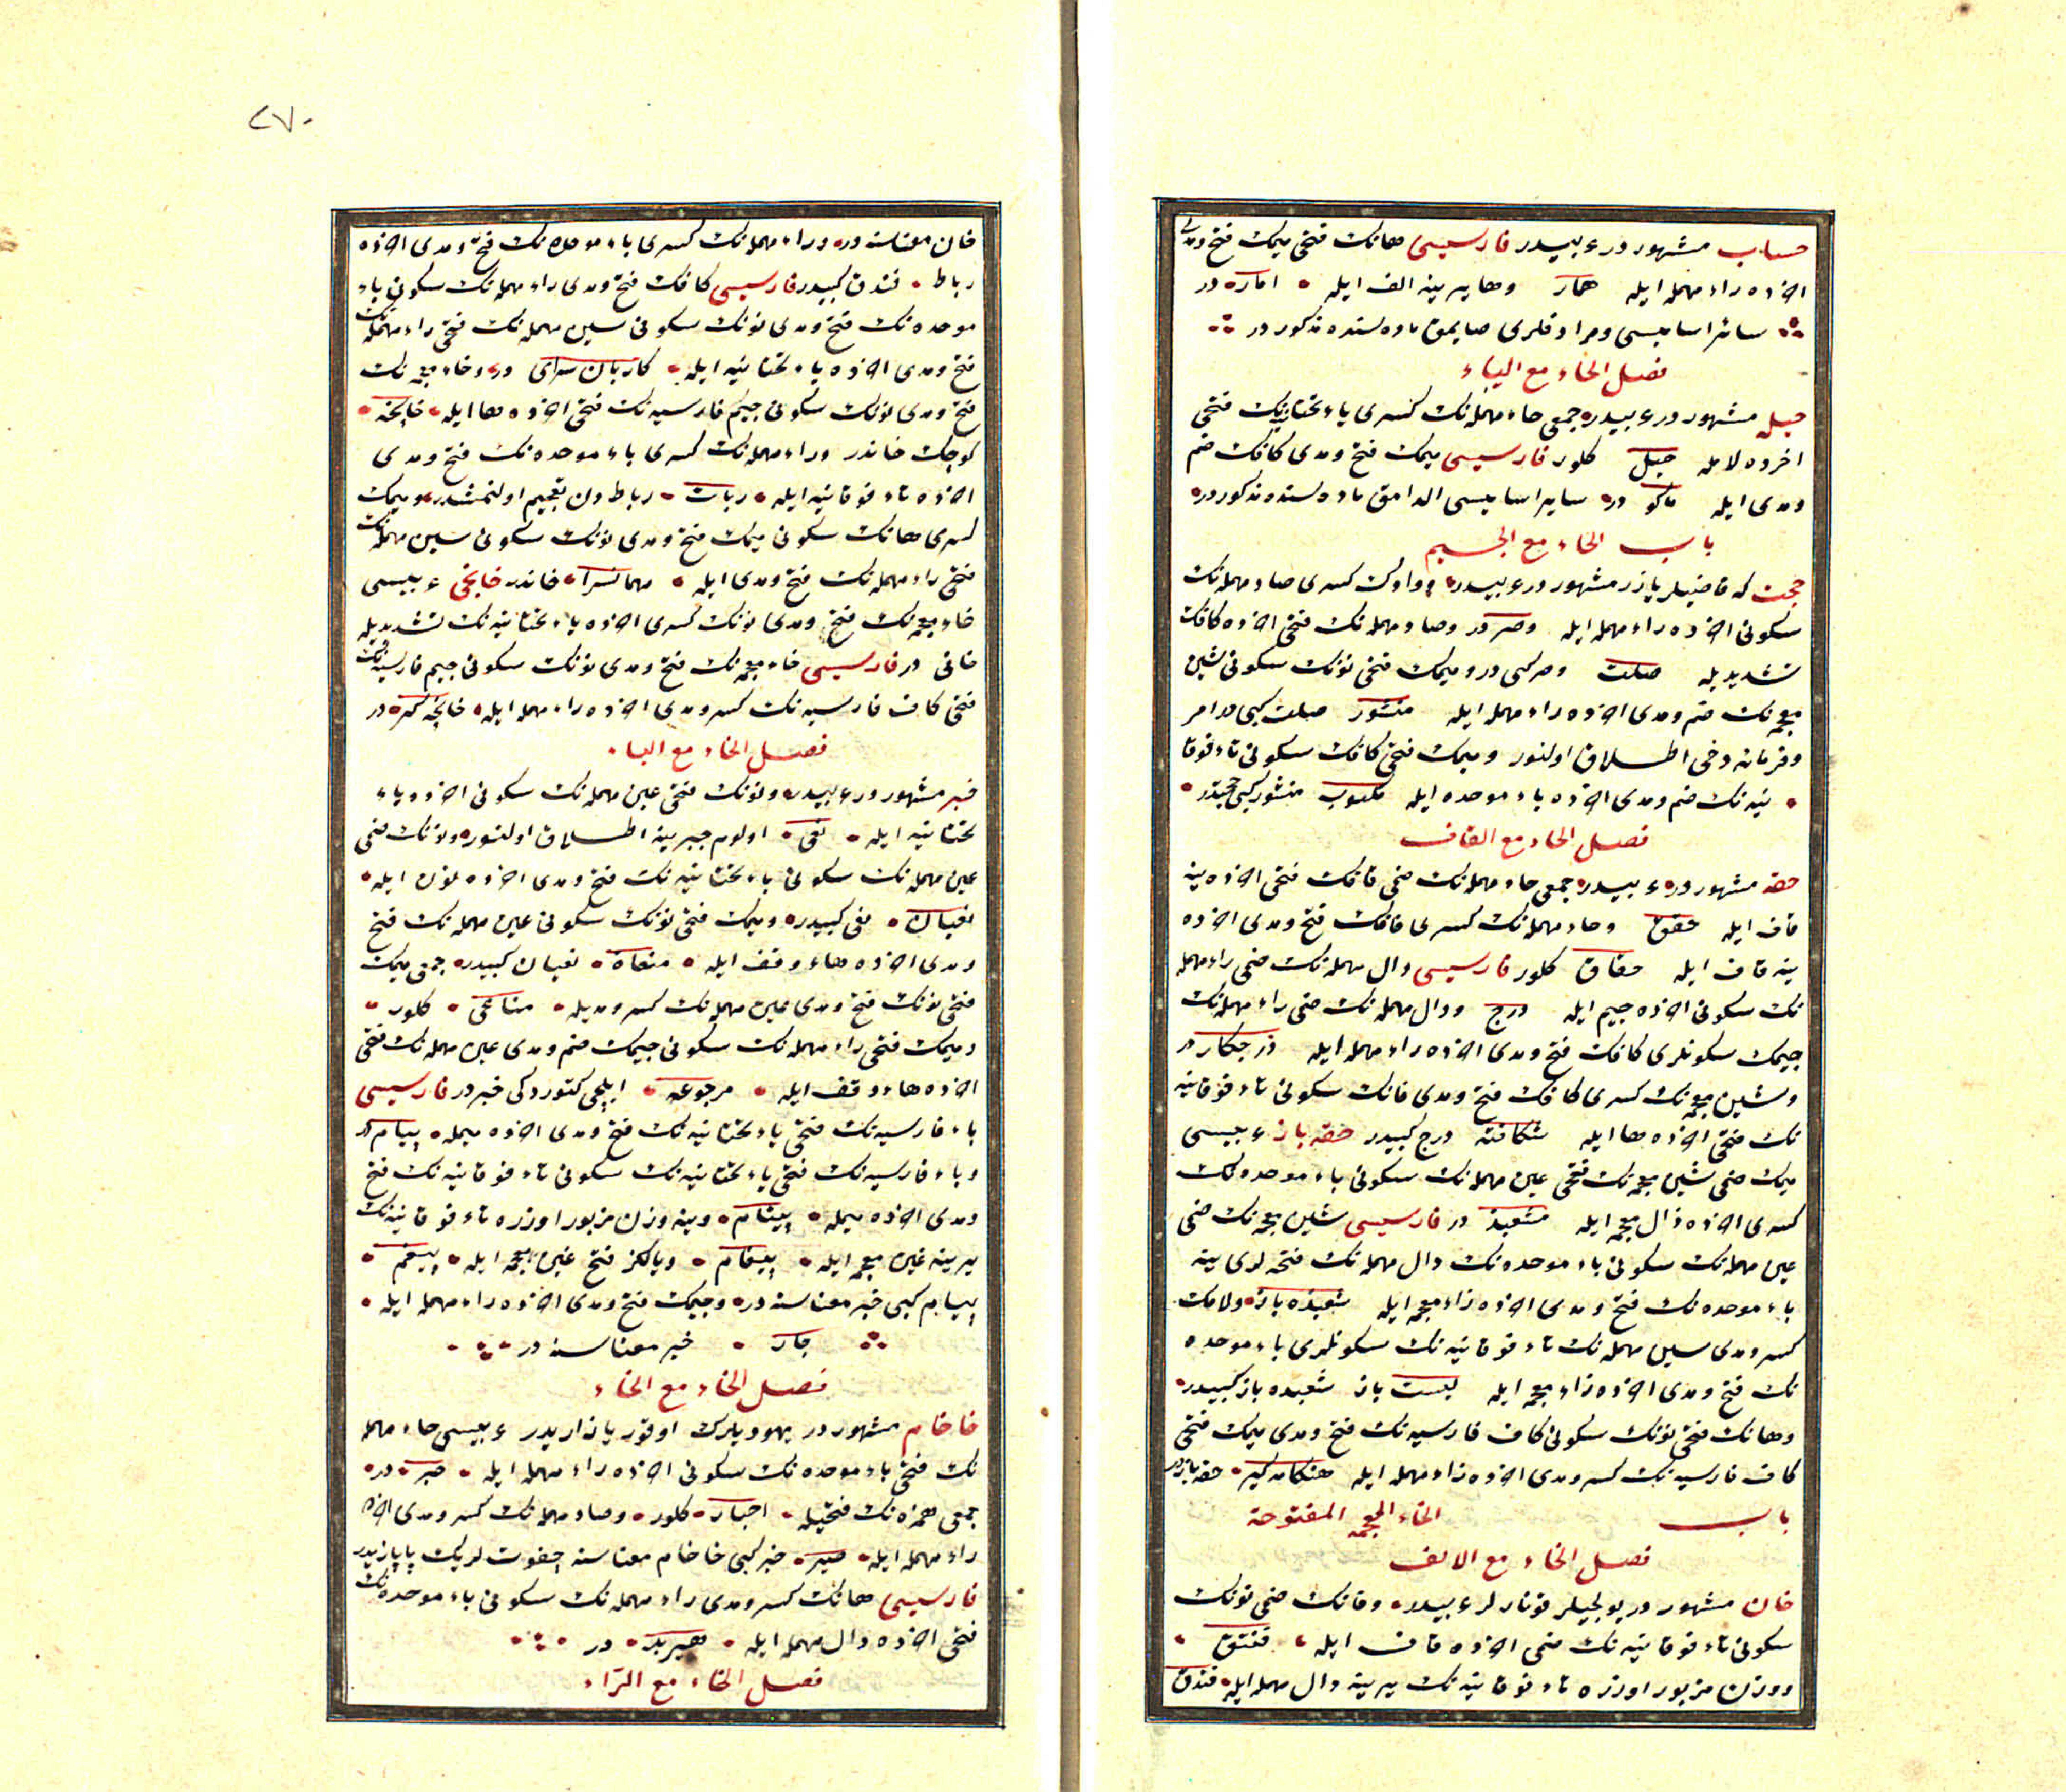 حساب مشهور در عربيسدر فارسيسى هانك فتحى ميمك فتح ومدى
اخرده راء مهمله ايله همار وها يرينه الف ايله اماره در
سائر اساميسى ومرادفلرى صايمق ماده سنده مذكور در
فصل الحاء مع الياء
حيله مشهور در عربيسدر جمعى حاء مهمله نك كسرى ياء تحتانيه نك فتحى
اخرده لامله حيل كلور فارسيسى ميمك فتح ومدى كافك ضم
ومدى ايله ماكو در ساير اساميسى الدامق ماده سنده مذكور در
باب الحاء مع الجيم
حجت كه قاضيلر يازر مشهور در عربيسدر وواوك كسرى صاد مهمله نك
سكونى اخرده راء مهمله ايله وصر در وصاد مهمله نك فتحى اخرده كافك
تشديديله صك وصر كبى در وميمك فتحى نونك سكونى شين
معجمه نك ضم ومدى اخرده راء مهمله ايله منشور صك كبى در امر
وفرمانه دخى اطلاق اولنور وميمك فتحى كافك سكونى تاء فوقا
نيه نك ضم ومدى اخرده باء موحده ايله مكتوب منشور كبى حجتدر
فصل الحاء مع القاف
حقه مشهور در عربيسدر جمعى حاء مهمله نك ضمى قافك فتحى اخرده ينه
قاف ايله حقق وحاء مهمله نك كسرى قافك فتح ومدى اخرده
ينه قاف ايله حقاق كلور فارسيسى دال مهمله نك ضمى راء مهمله
نك سكونى اخرده جيم ايله درج ودال مهمله نك ضمى راء مهمله نك
جيمك سكونلرى كافك فتح ومدى اخرده راء مهمله ايله درجكار در
وشين معجمه نك كسرى كافك فتح ومدى فانك سكونى تاء فوقانيه
نك فتحى اخرده ها ايله شكافته درج كبيدر حقه باز عربيسى
ميمك ضمى شين معجمه نك فتحى عين مهمله نك سكونى باء موحده نك
كسرى اخرده ذال معجمه ايله مشعبذ در فارسيسى شين معجمه نك ضمى
عين مهمله نك سكونى باء موحده نك دال مهمله نك فتحه لرى ينه
باء موحده نك فتح ومدى اخرده زاء معجمه ايله شعبده باز ولامك
كسر ومدى سين مهمله نك تاء فوقانيه نك سكونلرى باء موحده
نك فتح ومدى اخرده زاء معجمه ايله لعبت باز شعبده باز كبيدر
وهانك فتحى نونك سكونى كاف فارسيه نك فتح ومدى ميمك فتحى
كاف فارسيه نك كسر ومدى اخرده راء مهمله ايله هنكامه كير حقه باز در
باب الخاء المعجمه المفتوحة
فصل الخاء مع الالف
خان مشهور در يولجيلر قونارلر عربيسدر وفانك ضمى نونك
سكونى تاء فوقانيه نك ضمى اخرده قاف ايله فنتق
ووزن مزبور اوزره تاء فوقانيه نك يرينه دال مهمله ايله فندق
٢٧٠
خان معناسنه در وراء مهمله نك كسرى باء موحده نك فتح ومدى اخرده
رباط فندق كبيدر فارسيسى كافك فتح ومدى راء مهمله نك سكونى باء
موحده نك فتح ومدى نونك سكونى سين مهمله نك فتحى راء مهمله نك
فتح ومدى اخرده ياء تحتانيه ايله كاربان سراى در وخاء معجمه نك
فتح ومدى نونك سكونى جيم فارسيه نك فتحى اخرده ها ايله خانچه
كوچك خاندر وراء مهمله نك كسرى باء موحده نك فتح ومدى
اخرده تاء فوقانيه ايله ربات رباط دن تعجيم اولنمشدر وميمك
كسرى هانك سكونى ميمك فتح ومدى نونك سكونى سين مهمله نك
فتحى راء مهمله نك فتح ومدى ايله مهمانسرا خاندر خانجى عربيسى
خاء معجمه نك فتح ومدى نونك كسرى اخرده ياء تحتانيه نك تشديديله
خانى در فارسيسى خاء معجمه نك فتح ومدى نونك سكونى جيم فارسيه نك
فتحى كاف فارسيه نك كسر ومدى اخرده راء مهمله ايله خانچه كير در
فصل الخاء مع الباء
خبر مشهور در عربيسدر ونونك فتحى عين مهمله نك سكونى اخرده ياء
تحتانيه ايله نعى اولوم خبرينه اطلاق اولنور ونونك ضمى
عين مهمله نك سكونى ياء تحتانيه نك فتح ومدى اخرده نون ايله
نعيان نعى كبيدر وميمك فتحى نونك سكونى عين مهمله نك فتح
ومدى اخرده هاء وقف ايله منعاة نعيان كبيدر جمعى ميمك
فتحى نونك فتح ومدى عين مهمله نك كسر ومديله مناعى كلور
وميمك فتحى راء مهمله نك سكونى جيمك ضم ومدى عين مهمله نك فتحى
اخرده هاء وقف ايله مرجوعه ايلچى كتوردكى خبر در فارسيسى
باء فارسيه نك فتحى ياء تحتانيه نك فتح ومدى اخرده ميمله پيام در
وباء فارسيه نك فتحى ياء تحتانيه نك سكونى تاء فوقانيه نك فتح
ومدى اخرده ميمله پيتام وينه وزن مزبور اوزره تاء فوقانيه نك
يرينه غين معجمه ايله پيغام ويالكز فتح غين معجمه ايله پيغم
پيام كبى خبر معناسنه در وجيمك فتح ومدى اخرده راء مهمله ايله
جار خبر معناسنه در
فصل الخاء مع الخاء
خاخام مشهور در يهوديلرك اوقور يازاريدر عربيسى حاء مهمله
نك فتحى باء موحده نك سكونى اخرده راء مهمله ايله حبر در
جمعى همزه نك فتحيله احبار كلور وصاد مهمله نك كسر ومدى اخرده
راء مهمله ايله صير حبر كبى خاخام معناسنه چفوت لرك پاپازيدر
فارسيسى هانك كسر ومدى راء مهمله نك سكونى باء موحده نك
فتحى اخرده دال مهمله ايله هيربد در
فصل الخاء مع الراء